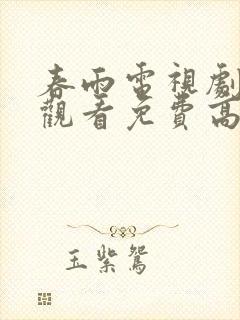 春雨電視劇
觀看免費高
玉紫鴛